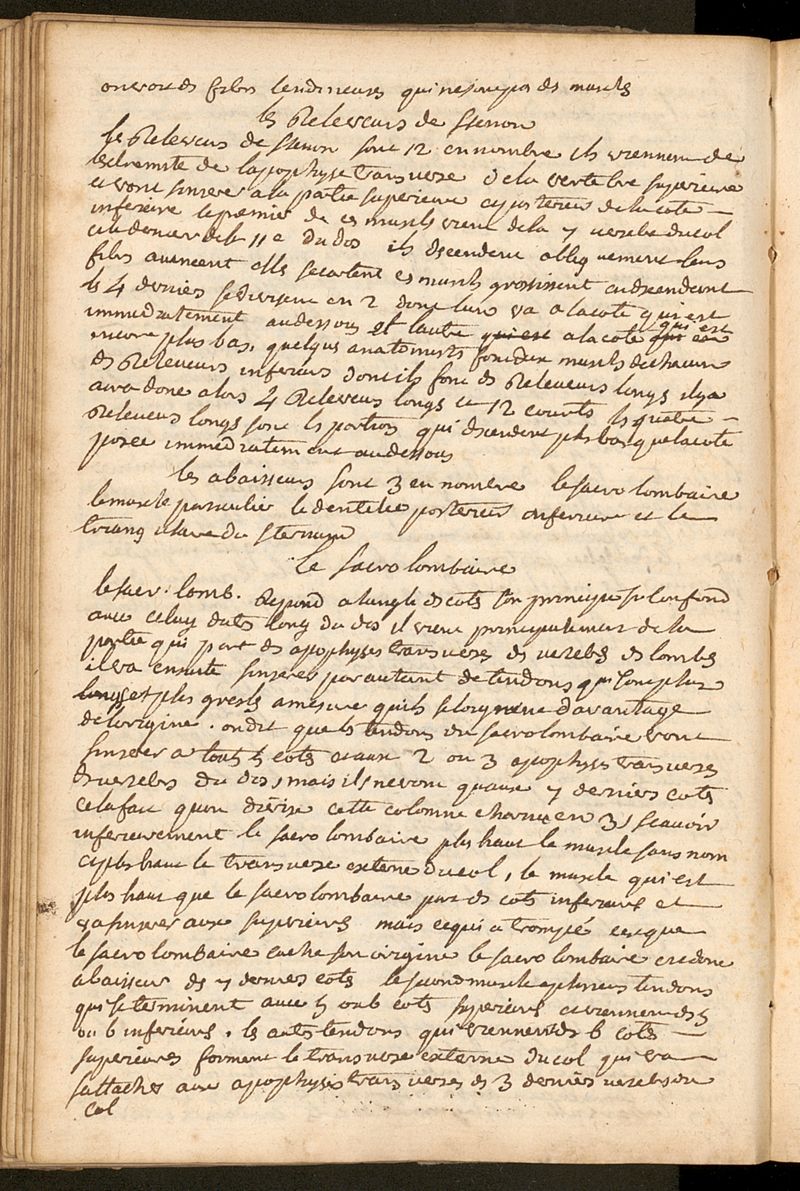 on voit des fibres tendineuses qui ne sont pas des muscles
les Releveurs de Stenon
les Releveurs de Stenon sont 12 en nombre ils viennent de
lextremité de lapophyse transverse de la vertebre superieure
et vont sinserer a la partie superieure et posterieure de la cote
inferieure le premier de ces muscles vient de la 7 vertebre du col
et le dernier de la 11e du dos ils descendent obliquement leurs
fibres avancent elles secartent ces muscles grossissent en descendent
les 4 derniers se divisent en 2 dont lune va a la cote qui est
immediatement audessous et lautre qui est a la cote qui est
encore plus bas, quelques anatomistes font deux muscles de chacun
des Releveurs inferieurs dont ils font des Releveurs longs il y a
aura donc alors 4 Releveurs longs et 12 courts les quatre
Releveurs longs sont les portions qui descendent plus bas que la cote
posée immediatement audessous
les abaisseurs sont 3 en nombre le sacro lombaire
le muscle particulier le dentelée posterieur inferieur et le
triangulaire du sternum
Le sacro lombaire
le sacr. lomb. Repond a langle des cotes son principe se confond
avec celuy du tres long du dos il vient principalement de la
partie qui part des apophyses transverses des vertebres des lombes
il va ensuite sinserer par autant de tendons qui sont plus
longs et plus gresles a mesure quils seloignent davantage
de lorigine. on dit que les tendons du sacro lombaire vont
sinserer a toutes les cotes et aux 2 ou 3 apophyses transverses
des vertebres du dos, mais ils ne vont quaux 7 dernieres cotes
cela fait quon divise cette colonne charnue en 3, scavoir
inferieurement le sacro lombaire plus haut le muscle sans nom
et plus haut le transverse externe du col, le muscle qui est
plus haut que le sacro lombaire part des cotes inferieures et
va sinserer aux superieures mais ce qui a trompé cest que
le sacro lombaire cache son origine le sacro lombaire est donc
abaisseur des 7 dernieres cotes le second muscle a plusieurs tendons
qui se terminent aux 5 ou 6 cotes superieures et viennent des 5
ou 6 inferieures. les autres tendons qui viennent des 6 cotes
superieures forment le transverse externe du col qui va
sattacher aux apophyses transverses des 3 dernieres vertebres du
col